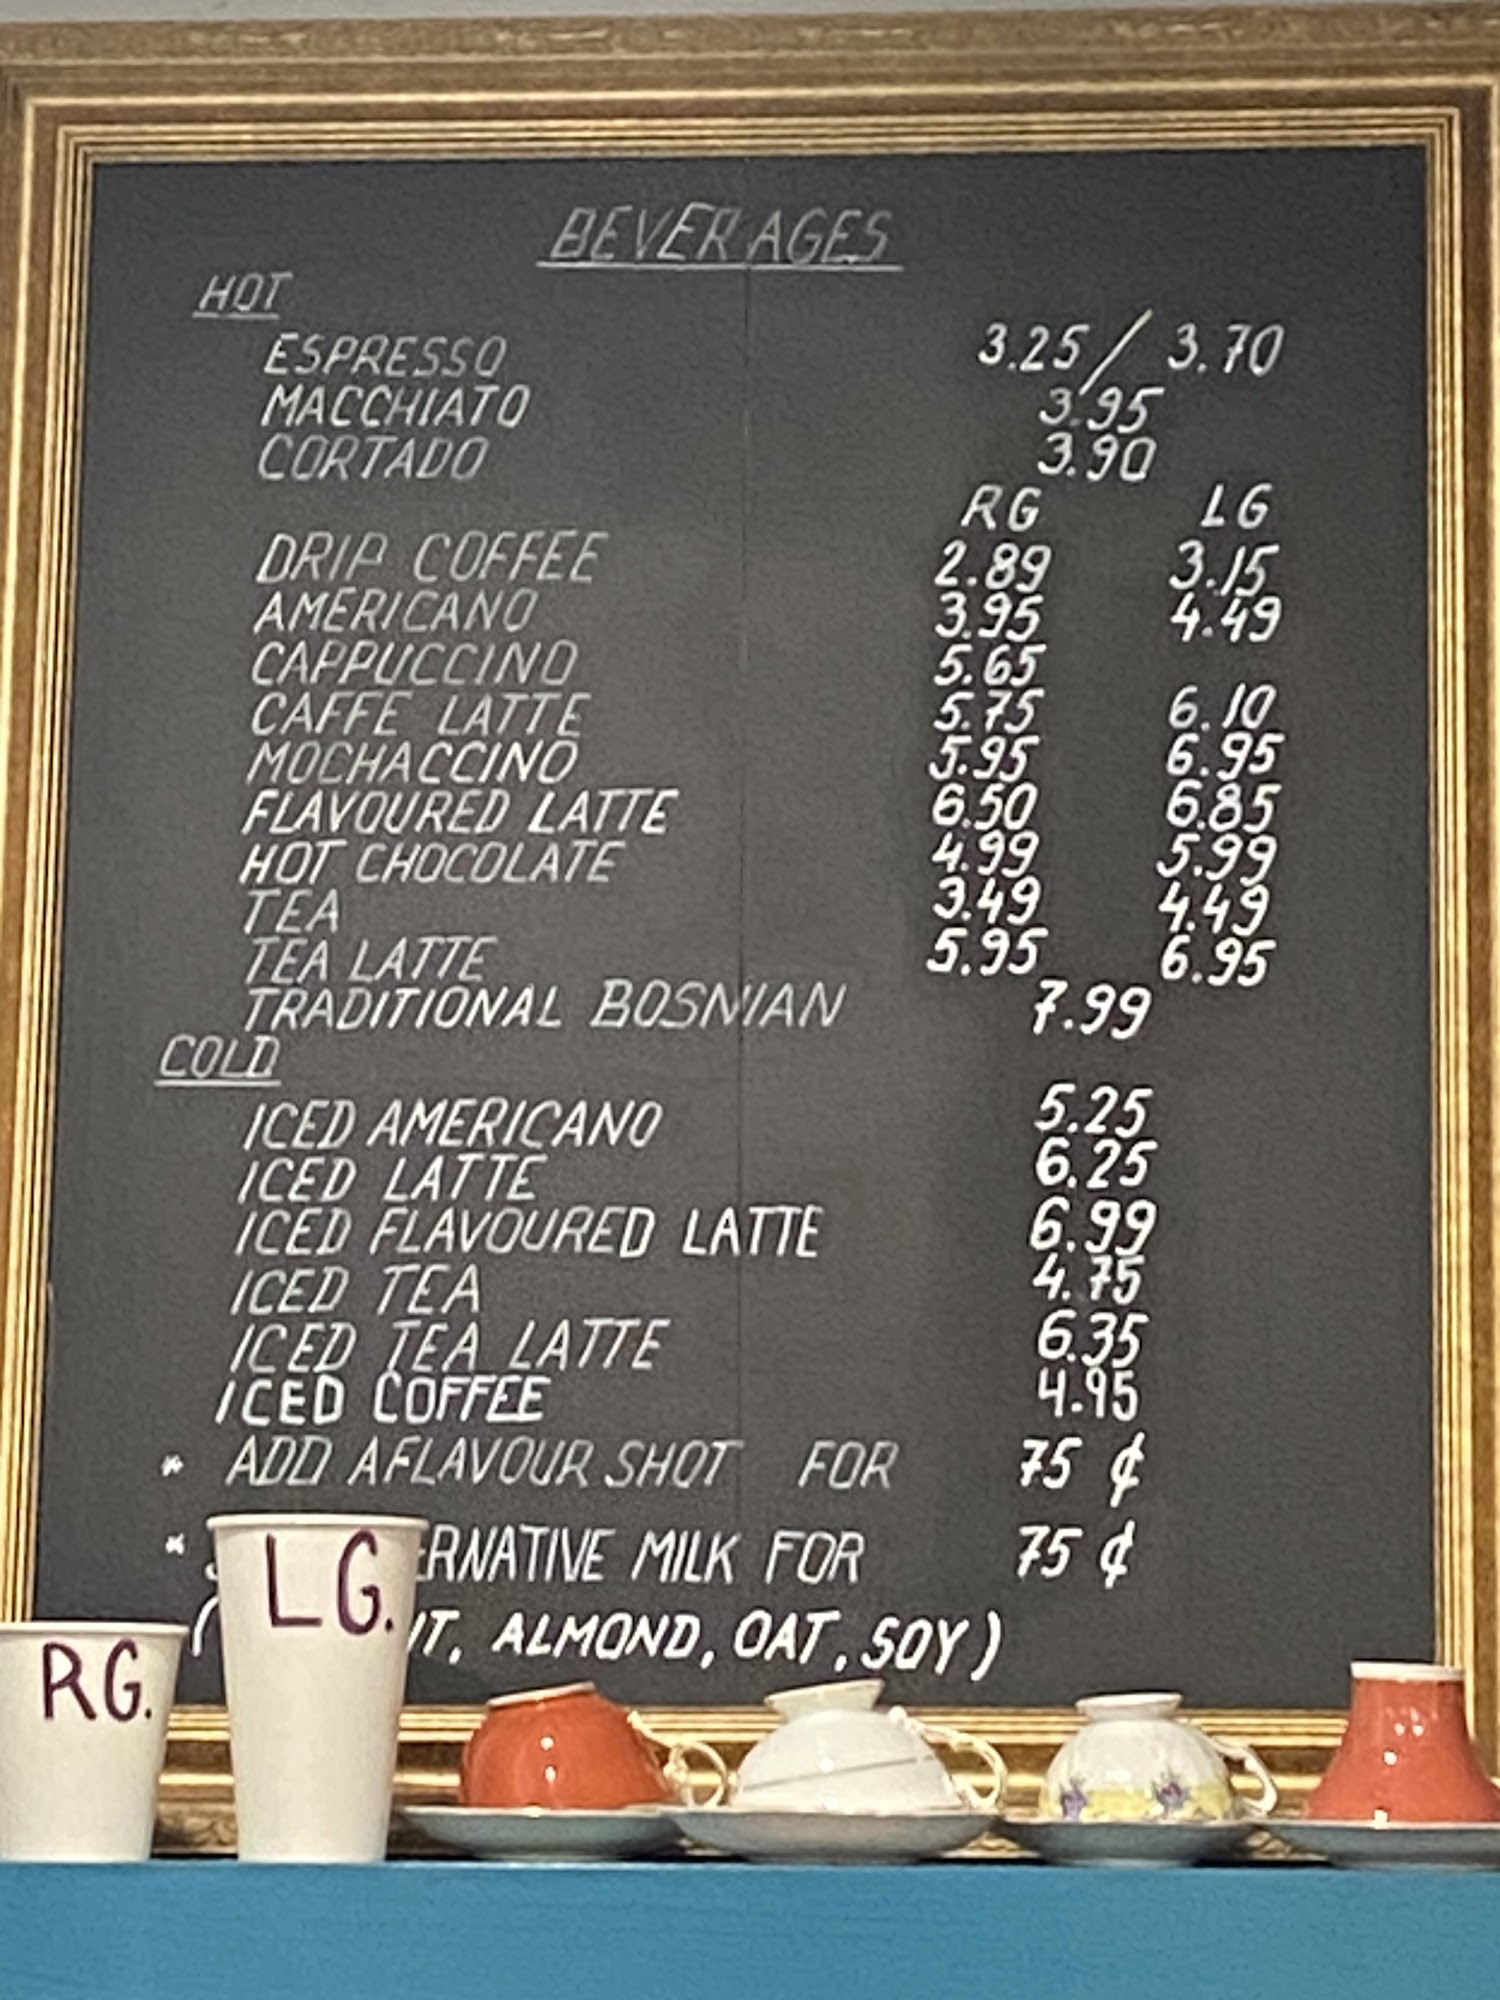 BEVERAGES
HOT
ESPRESSO 3.25 / 3.70
MACCHIATO 3.95
CORTADO 3.90
RG LG
DRIP COFFEE 2.89 3.15
AMERICANO 3.95 4.49
CAPPUCCINO 5.65
CAFFE LATTE 5.75 6.10
MOCHACCINO 5.95 6.95
FLAVOURED LATTE 6.50 6.85
HOT CHOCOLATE 4.99 5.99
TEA 3.49 4.49
TEA LATTE 5.95 6.95
TRADITIONAL BOSNIAN 7.99
COLD
ICED AMERICANO 5.25
ICED LATTE 6.25
ICED FLAVOURED LATTE 6.99
ICED TEA 4.75
ICED TEA LATTE 6.35
ICED COFFEE 4.95
* ADD A FLAVOUR SHOT FOR 75 ¢
* ERNATIVE MILK FOR 75 ¢
( UT, ALMOND, OAT, SOY )
LG.
RG.